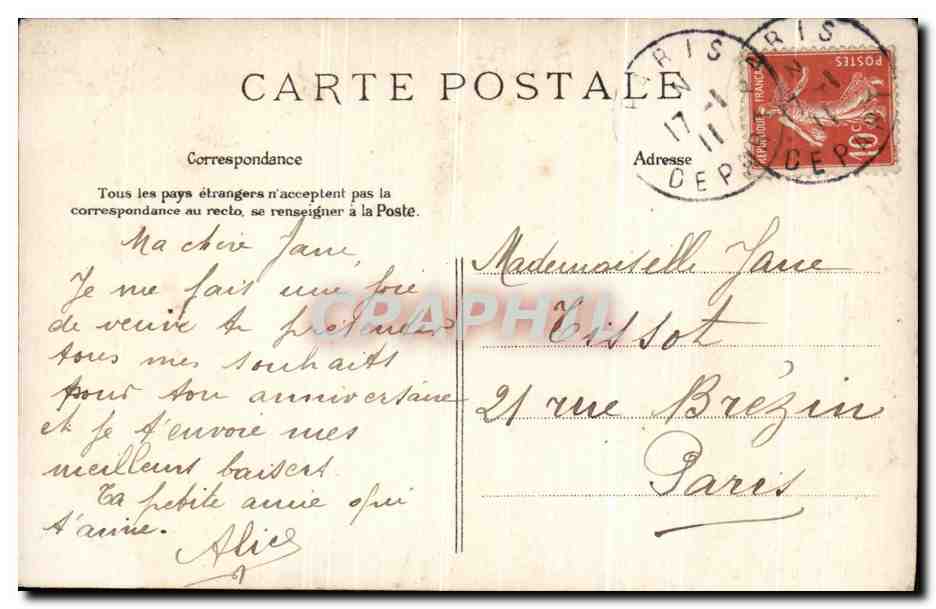 CARTE POSTALE
PARIS
17 -1
11
DEPART
PARIS
17 -1
11
DEPART
POSTES
REPUBLIQUE FRANÇAISE
10 c
Correspondance
Adresse
Tous les pays étrangers n'acceptent pas la
correspondance au recto, se renseigner à la Poste.
Ma chère Jane,
Je me fais une joie
de venire te présenter
tous mes souhaits
pour ton anniversaire
et je t'envoie mes
meilleurs baisers
Ta petite amie qui
t'aime.
Alice
Mademoiselle Jane
Tissot
21 rue Brézin
Paris
CRAPHIL